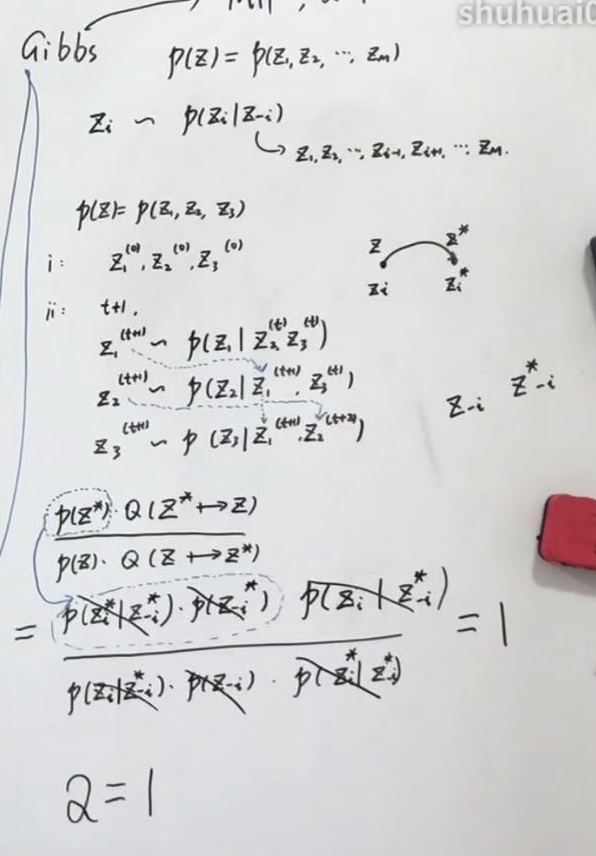 shuhuai0
MH
Gibbs
p(z) = p(z₁, z₂, ⋯, z_M)
z_i ~ p(z_i|z_{-i})
z₁, z₂, ⋯, z_{i-1}, z_{i+1}, ⋯ z_M.
p(z) = p(z₁, z₂, z₃)
i: z₁^{(0)}, z₂^{(0)}, z₃^{(0)}
z z*
z_i z_i*
ii: t+1.
z₁^{(t+1)} ~ p(z₁ | z₂^{(t)} z₃^{(t)})
z₂^{(t+1)} ~ p(z₂ | z₁^{(t+1)}, z₃^{(t)})
z_{-i} z*_{-i}
z₃^{(t+1)} ~ p(z₃ | z₁^{(t+1)}, z₂^{(t+2)})
p(z*) · Q(z* ↦ z)
p(z) · Q(z ↦ z*)
= p(z_i*|z_{-i}*) · p(z_{-i}*) p(z_i | z_{-i}*) = 1
p(z_i|z_{-i}*) · p(z_{-i}) · p(z_i* | z_{-i}*)
2 = 1